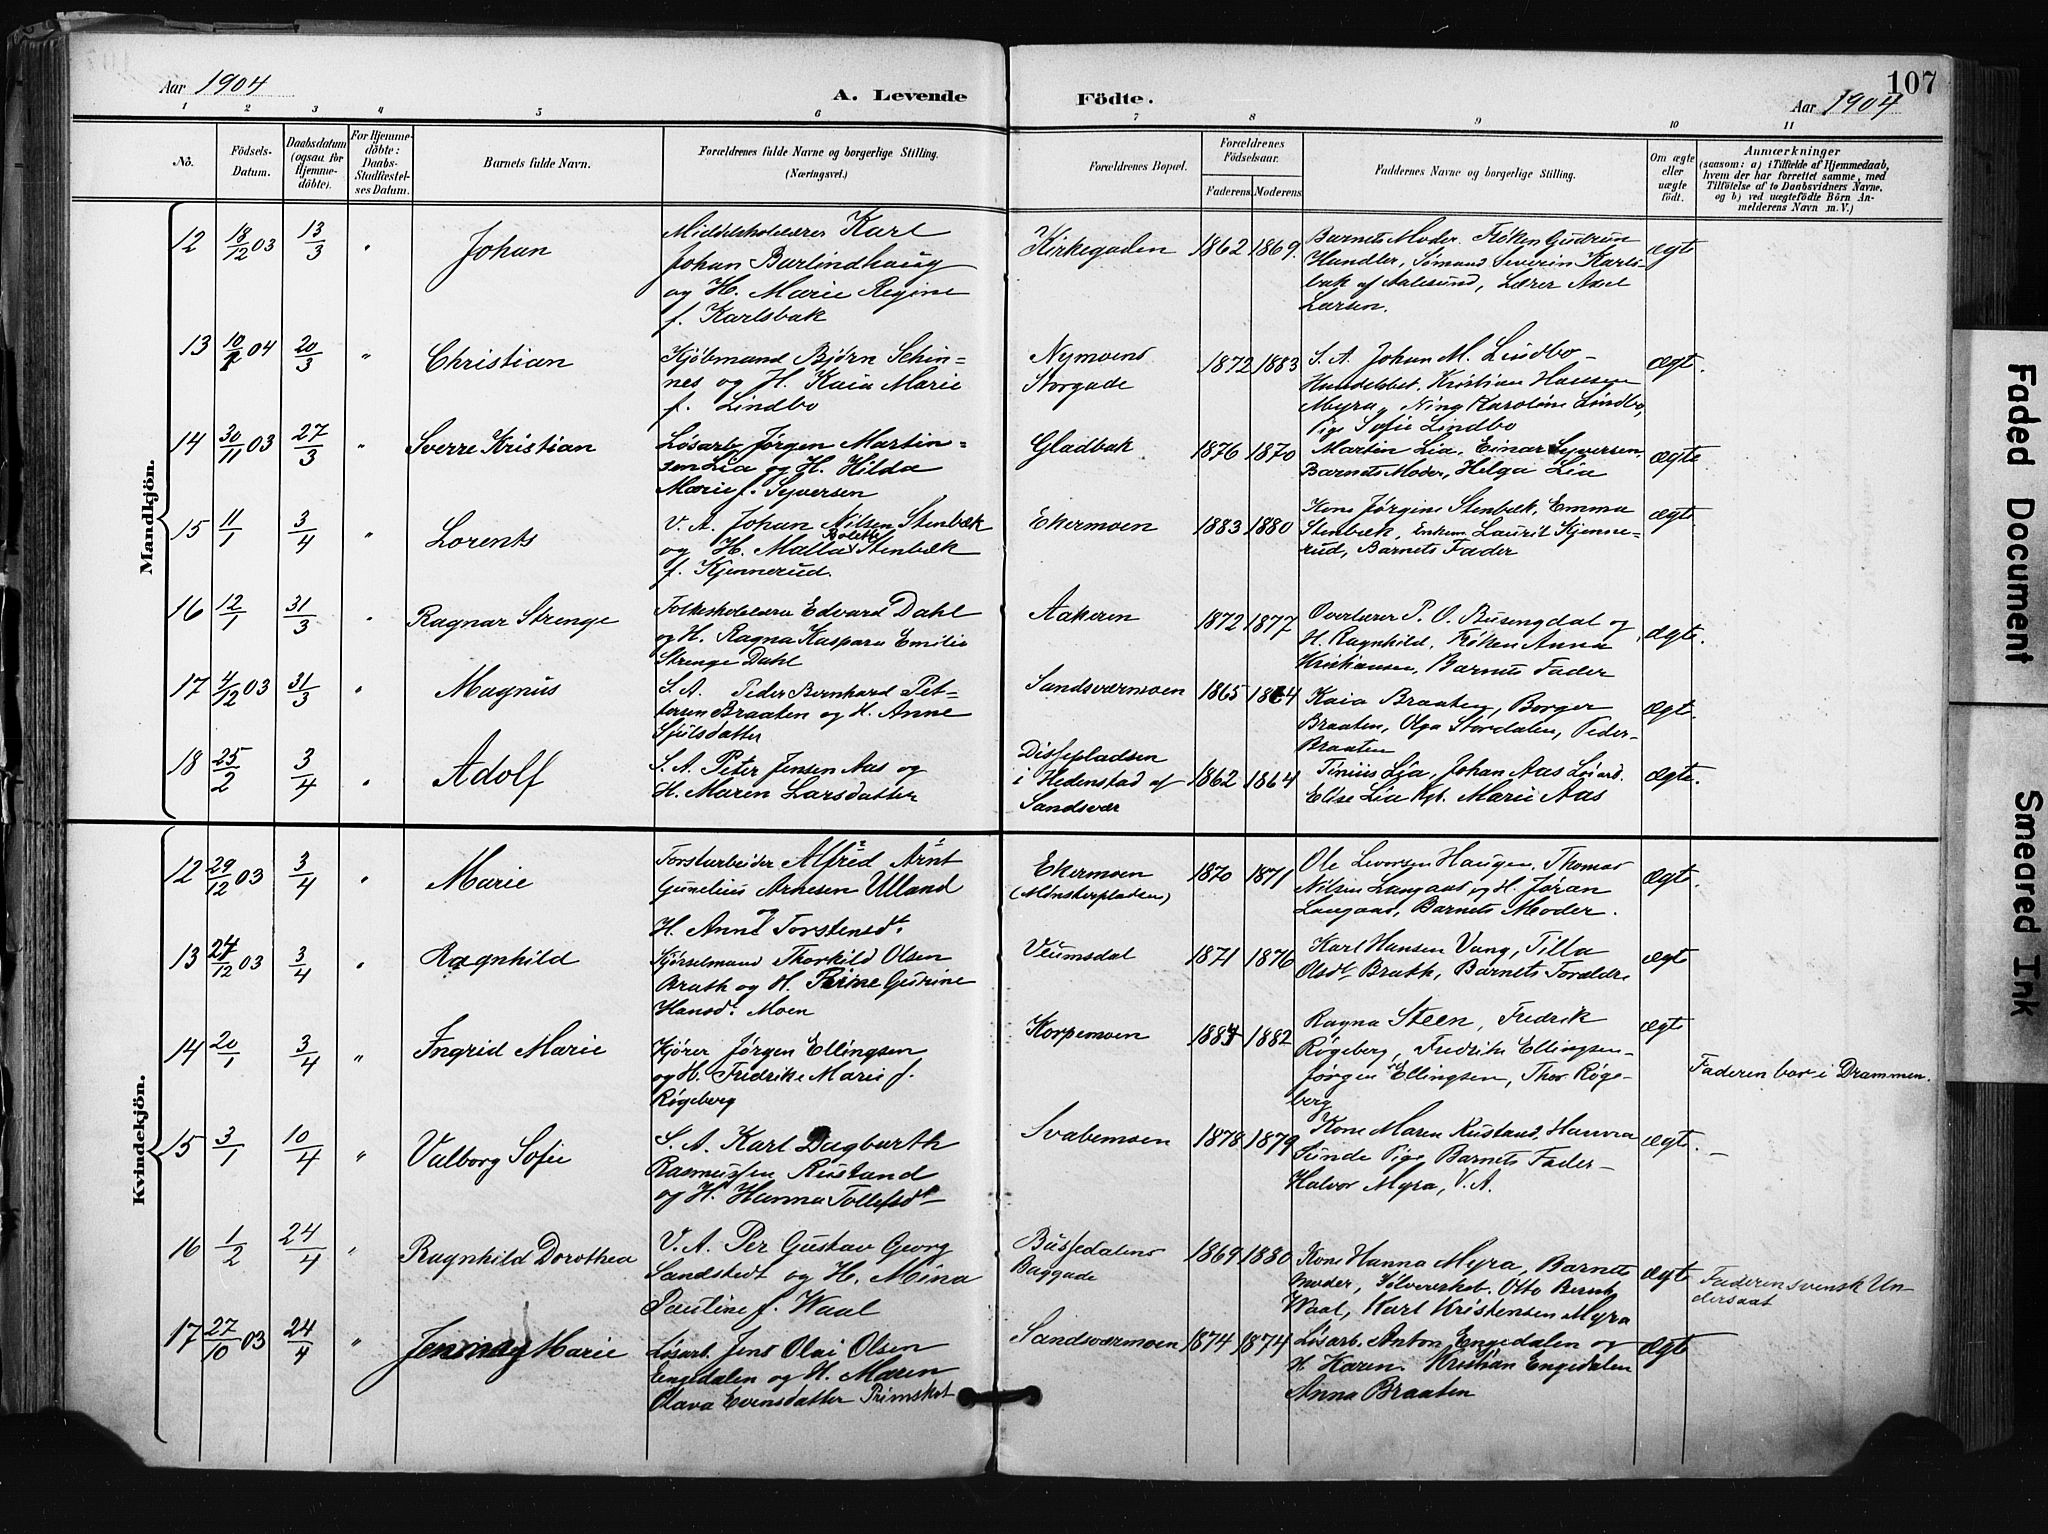 107
Aar 1904
A. Levende Födte.
Aar 1904
1 2 3 4 5 6 7 8 9 10 11
No.
Födsels-
Datum.
Daabsdatum
(ogsaa for
Hjemme-
döbte).
For Hjemme-
döbte:
Daabs-
Stadfæstel-
ses Datum.
Barnets fulde Navn.
Forældrenes fulde Navne og borgerlige Stilling.
(Næringsvei.)
Forældrenes Bopæl.
Forældrenes
Födselsaar.
Faderens. Moderens.
Faddernes Navne og borgerlige Stilling.
Om ægte
eller
uægte
födt.
Anmærkninger
(saasom: a) i Tilfælde af Hjemmedaab,
hvem der har forrettet samme, med
Tilföielse af to Daabsvidners Navne.
og b) ved uægtefödte Börn An-
melderens Navn m. V.)
Mandkjön.
12 18/12 03 13/3 " Johan
Middelskolelærer Karl
Johan Burlindhaug
og H. Marie Regine
f. Karlsbak
Kirkegaden 1862 1869.
Barnets Moder. Frøken Gudrun
Handler, Sømand Severin Karls-
bak af Aalesund, Lærer Axel
Larsen.
ægte
13 10/1 04 20/3 " Christian
Kjøbmand Bjørn Schin-
nes og H. Kaia Marie
f. Lindbo
Nymoens
Storgade
1872 1883
S. A. Johan M. Lindbo-
Handelsbet. Kristian Hansen
Myra, Nina Karoline Lindbo,
Pige Sofie Lindbo
ægte.
14 30/11 03 27/3 " Sverre Kristian
Løsarb. Jørgen Martin-
sen Lia og H. Hilda
Marie f. Syversen
Gladbak 1876 1870
Martin Lia, Einar Syversen,
Barnets Moder, Helga Lia
ægte
15 11/1 3/4 " Lorents
V. A. Johan Nilsen Stenbæk
og H. Malla Bolette Stenbæk
f. Kjennerud.
Ekermoen 1883 1880
Kone Jørgine Stenbæk, Emma
Stenbæk, Enkem. Laurits Kjenne-
rud, Barnets Fader
ægte.
16 12/1 31/3 " Ragnar Strenge
Folkeskolelærer Edvard Dahl
og H. Ragna Kaspara Emilie
Strenge Dahl
Aakeren 1872 1877
Overlærer P. O. Busengdal og
H. Ragnhild, Frøken Anna
Kristiansen, Barnets Fader
ægte.
17 4/12 03 31/3 " Magnus
S. A. Peder Bernhard Pet-
tersen Braaten og H. Anne
Sjulsdatter
Sandsværmoen 1865 1864
Kaia Braaten, Borger
Braaten, Olga Stordalen, Peder
Braaten
ægte.
18 25/2 3/4 " Adolf
S. A. Peter Jensen Aas og
H. Maren Larsdatter
Dissepladsen
i Hedenstad af
Sandsvær
1862 1864
Tinius Lia, Johan Aas Løsarb.
Elise Lia Pige. Marie Aas
ægte.
Kvindekjön.
12 29/12 03 3/4 " Marie
Torstarbeider Alfred Arnt
Gunelius Arnesen Ulland
og
H. Anne Torstensdtr
Ekermoen
(Mønsterpladsen)
1870 1871
Ole Levorsen Haugen, Thomas
Nilsen Langaas og H. Jøran
Langaas, Barnets Moder.
ægte
13 24/12 03 3/4 " Ragnhild
Kjørselmand Thorkild Olsen
Bruth og H. Pirine Gurine
Hansd. Moen
Veumsdal 1871 1876
Karl Hansen Vang, Tilla
Olsdtr Bruth, Barnets Forældre
ægte
14 20/1 3/4 " Ingrid Marie
Kjører Jørgen Ellingsen
og H. Fredrikke Marie f.
Røgeberg
Korpemoen 1884 1882
Ragna Steen, Fredrik
Røgeberg, Fredrik Ellingsen-
Jørgen Ellingsen, Thor Røge-
berg
ægte
Faderen bor i Drammen.
15 3/1 10/4 " Valborg Sofie
S. A. Karl Dagbarth
Rasmussen Rustand
og H. Hanna Tollefsdtr
Svabemoen 1878 1879
Kone Maren Rustand, Hanna
Sunde Pige, Barnets Fader-
Halvor Myra, V. A.
ægte.
16 1/2 24/4 " Ragnhild Dorothea
V. A. Per Gustav Georg
Sandstedt og H. Mina
Pauline f. Waal
Bussedalens
Baggade
1869 1880
Kone Hanna Myra, Barnets
Moder, Sølvverksb. Otto Bernh.
Waal, Karl Kristensen Myra
ægte
Faderen svensk Un
dersaat
17 27/10 03 24/4 " Jenny Marie
Løsarb. Jens Olai Olsen
Engedalen og H. Maren
Olava Evensdatter Primskot
Sandsværmoen 1874 1874
Løsarb. Anton Engedalen og
H. Karen, Kristian Engedalen
Anna Braaten
ægte
Faded Document
Smeared Ink